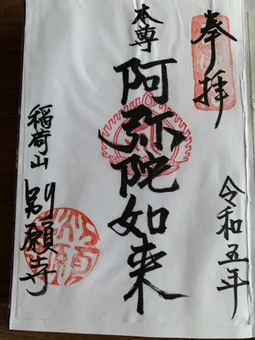 奉拝
令和五年
本尊
阿弥陀如来
稲荷山
別願寺